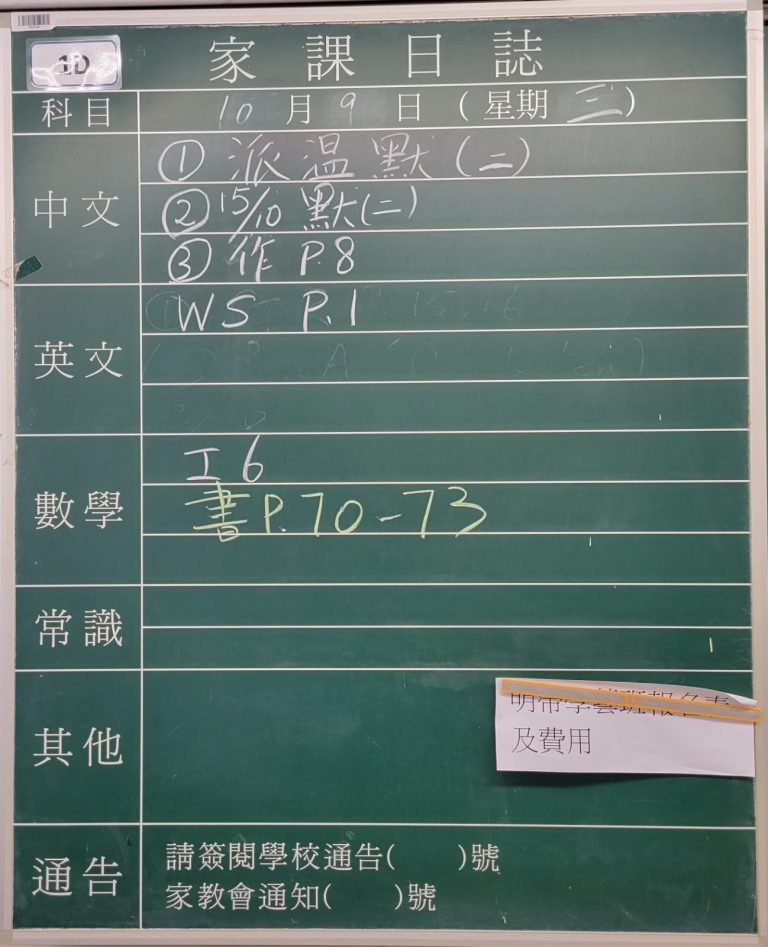 1D
家課日誌
科目 10月9日(星期三)
中文
① 派溫默(二)
② 15/10 默(二)
③ 作 P.8
英文
WS P.1
數學
工6
書P.70-73
常識
其他
明帶學藝班報名表
及費用
通告
請簽閱學校通告( )號
家教會通知( )號